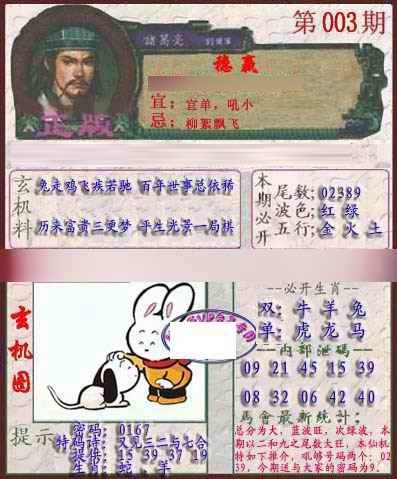 第003期
諸葛亮
稳赢
宜：宜单，吼小
忌：柳絮飘飞
正版
玄机料
兔走鸡飞疾若驰 百年世事总依稀
历来富贵三更梦 平生光景一局棋
本期必开
尾数：02389
波色：红 绿
五行：金 火 土
玄机图
必开生肖
双：牛 羊 兔
单：虎 龙 马
内部泄码
09 21 45 15 39
08 32 06 42 40
马會最新统计：
总分为大，蓝波旺，次绿波，本
期以二和九之尾数大旺，本仙机
特如下推介，吼够号码两个：02
39，今期送与大家的密码为9.
提示
密码：0167
特码诗：又见三二与七合
提供：15 39 37 19
生肖：蛇、羊